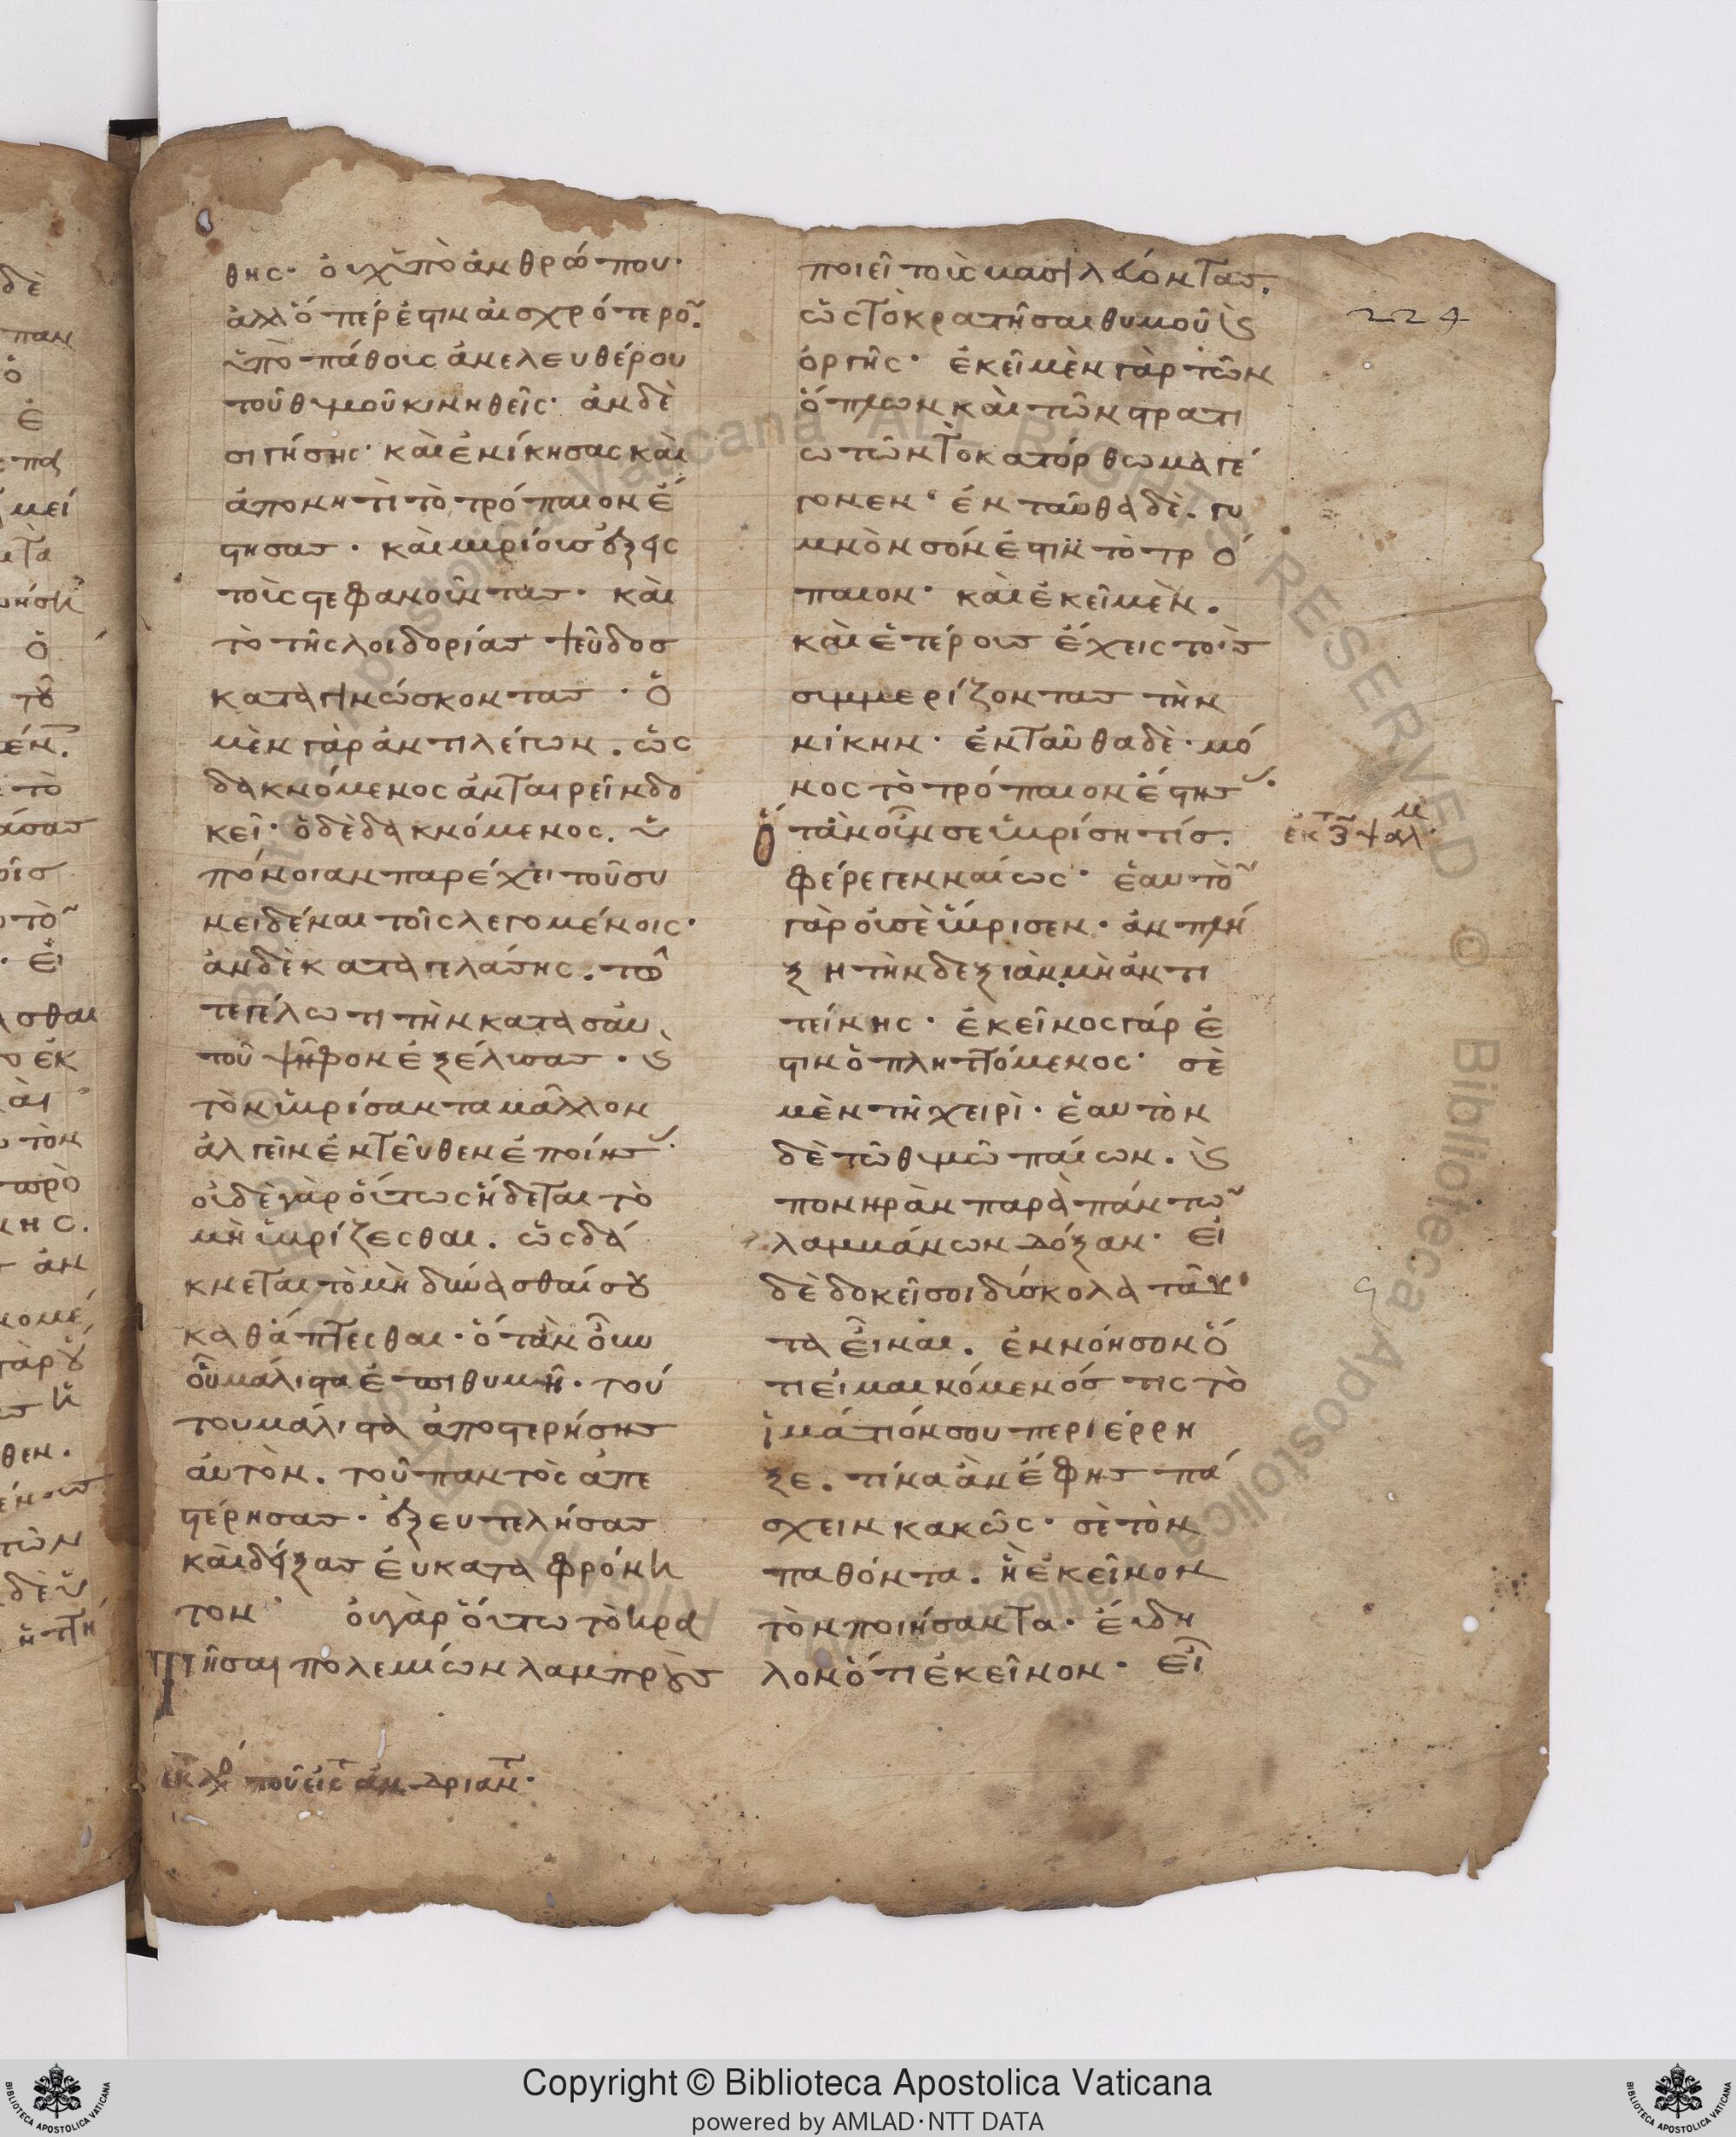 θης· οὐχ ὑπὸ ἀνθρώπου·
ἀλλ' ὅπέρ ἐστιν αἰσχρότερο̃.
ὑπὸ πάθους ἀνελευθέρου
τοῦ θυμοῦ κινηθεῖς· ἀν δὲ
σιγήσης· καὶ ἐνίκησας καὶ
ἀπονητὶ τὸ τρόπαιον ἔ
στησας· καὶ μυρίους ἕξεις
τοὺς στεφανοῦντας· καὶ
τὸ τῆς λοιδορίας ψεῦδος
καταγινώσκοντας· ὁ
μὲν γὰρ ἀντιλέγων. ὡς
δακνόμενος ἀνταιρεῖν δο
κεῖ· ὁ δὲ δακνόμενος. ὑ
πόνοιαν παρέχει τοῦ συ
νειδέναι τοῖς λεγομένοις·
ἀν δὲ καταγελάσης. τῶ
γέλωτι τὴν κατὰ σαυ
τοῦ ψῆφον ἐξέλυσας· ϗ
τὸν ὑβρίσαντα μᾶλλον
ἀλγεῖν ἐντεῦθεν ἐποίης·
οὐδὲ γὰρ οὕτως ἥδεται τὸ
μὴ ὑβρίζεσθαι. ὡς δά
κνεται τὸ μὴ δύνασθαί σου
καθάπτεσθαι· ὅταν οὖν
οὗ μάλιστα ἐπιθυμῆ· τού
του μάλιστα ἀποστερήσης
αὐτὸν. τοῦ παντὸς ἀπε
στέρησας· ἐξευτελήσας
καὶ δείξας εὐκαταφρόνη
τον· οὐ γὰρ οὕτω τὸ κρα
τῆσαι πολεμίων λαμπροὺς
ἐκ τοῦ εἰς ἀνδριαν·
ποιεῖ τοὺς βασιλεύοντας.
ὡς τὸ κρατῆσαι θυμοῦ ϗ
ὀργῆς· ἐκεῖ μὲν γὰρ τῶν
ὅπλων καὶ τῶν στρατι
ωτῶν τὸ κατόρθωμα γέ
γονεν· ἐνταῦθα δὲ. γυ
μνὸν σόν ἐστιν τὸ τρό
παιον· καὶ ἐκεῖ μὲν.
καὶ ἑτέρους ἔχεις τοὺς
συμμερίζοντας τὴν
νίκην· ἐνταῦθα δὲ· μό
νος τὸ τρόπαιον ἔστης·
ὅταν οὖν σε ὑβρίση τίς.
φέρε γενναίως· ἑαυτὸ̃
γὰρ οὐ σὲ ὕβρισεν· ἀν πλή
ξη τὴν δεξιὰν μὴ ἀντι
τείνης· ἐκεῖνος γάρ ἐ
στιν ὁ πληττόμενος· σὲ
μὲν τῆ χειρὶ· ἑαυτὸν
δὲ τῶ θυμῶ παίων. ϗ
πονηρὰν παρὰ πάντω̃
λαμβάνων δόξαν· εἰ
δὲ δοκεῖ σοι δύσκολα ταῦ
τα εἶναι. ἐννόησον ὅ
τι εἰ μαινόμενός τις τὸ
ἱμάτιόν σου περιέρρη
ξε. τίνα ἀν ἔφης πά
σχειν κακῶς· σὲ τὸν
παθόντα. ἢ ἐκεῖνον
τὸν ποιήσαντα· εὔδη
λον ὅτι ἐκεῖνον· εἶ
224
ἐκ τ ψαλμ